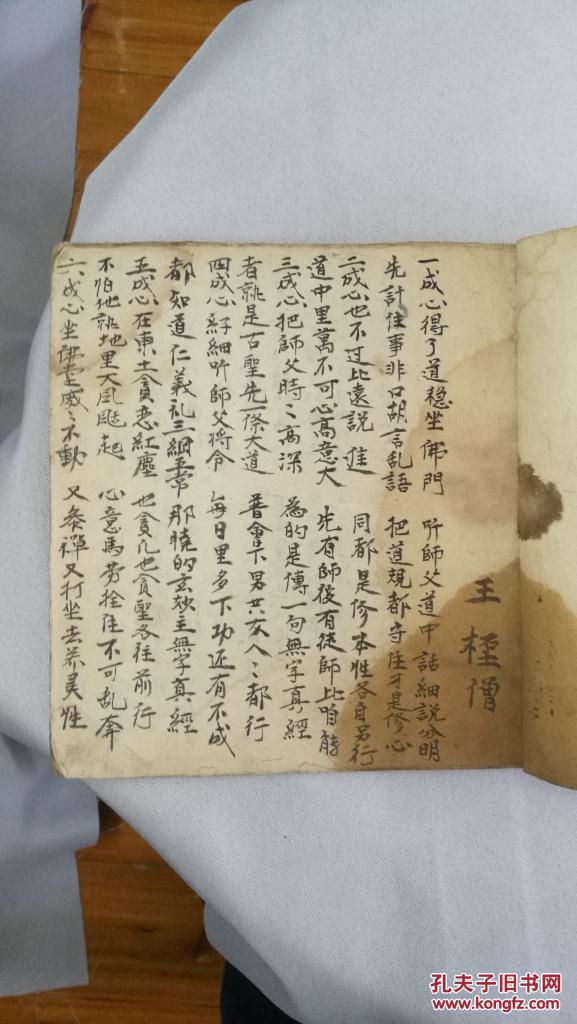 王 桎 僧
一成心得了道穏坐佛門 听師父道中話細説分明
先計住事非口胡言乱語 把道規都守住才是修心
二成心也不过比遠説進 同都是修本性各自另行
道中里萬不可心高意大 先有師後有徒師比咱能
三成心把師父時〻高深 為的是傳一句無字真經
者就是古聖先一條大道 普會下男共女人〻都行
四成心仔細听師父将令 每日里多下功还有不成
都知道仁義礼三綱五常 那曉的玄妙主無字真經
五成心在東土貪恋紅塵 也貪凡也貪聖各往前行
不怕他就地里大風颳起 心意馬劳拴住不可乱奔
六成心坐佛堂威〻不動 又叅禅又打坐去养灵性
孔夫子旧书网
www.kongfz.com